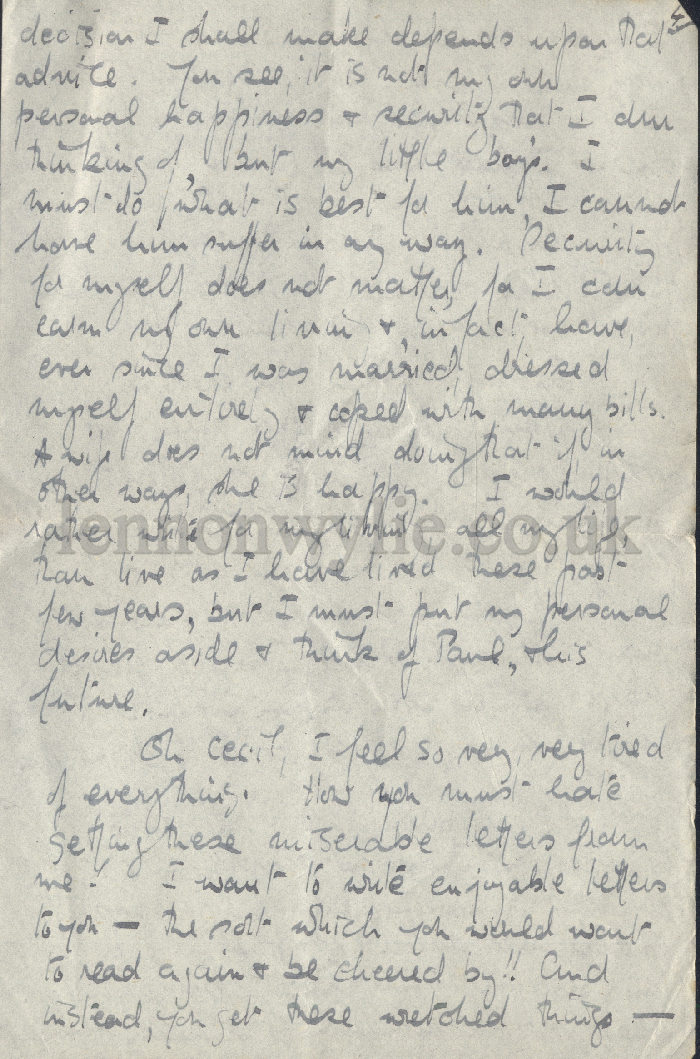 decision I shall make depends upon that
advice. You see, it is not my own
personal happiness & security that I am
thinking of, but my little boy's. I
must do what is best for him, I cannot
have him suffer in any way. Security
for myself does not matter, for I can
earn my own living &, in fact, have,
ever since I was married, dressed
myself entirely & coped with many bills.
A wife does not mind doing that if, in
other ways, she is happy. I would
rather write for my living all my life,
than live as I have lived these past
few years, but I must put my personal
desires aside & think of Paul, & his
future.
Oh Cecil, I feel so very, very tired
of everything. How you must hate
getting these miserable letters from
me! I want to write enjoyable letters
to you — the sort which you would want
to read again & be cheered by!! And
instead, you get these wretched things —
lennonwylie.co.uk